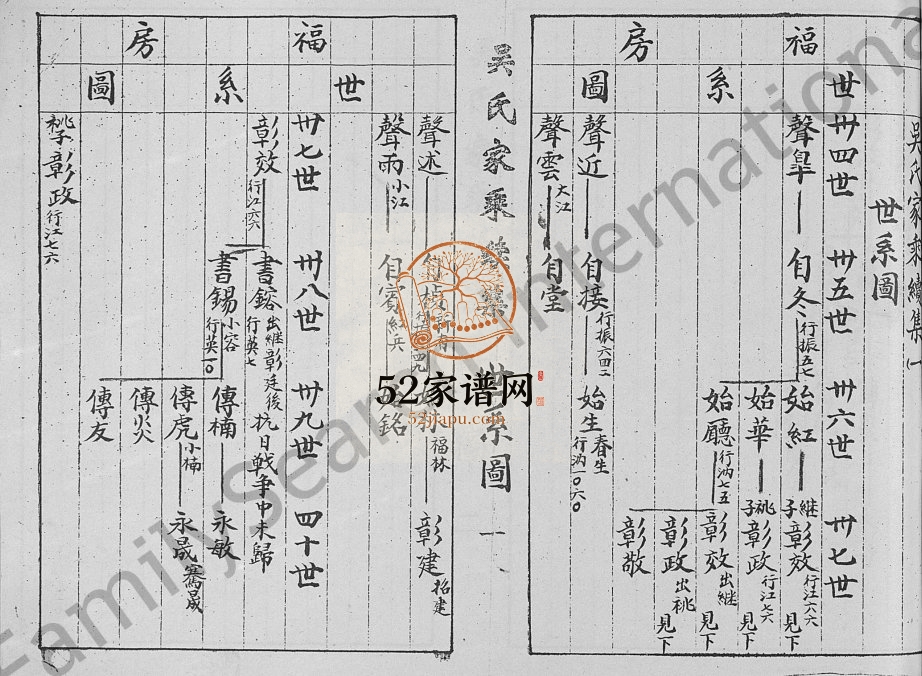 吳氏家乘續集 一
世系圖
福房
世系圖
卅四世 卅五世 卅六世 卅七世
聲皐 自冬 行振五七 始紅 繼子彰效 行江六六 見下
始華 祧子彰政 行江七六 見下
始廳 行汭七五 彰效 出繼 見下
彰政 出祧 見下
彰敬
聲近 自接 行振六四二 始生 春生 行汭一〇六〇
聲雲 大江 自堂
吳氏家乘 世系圖 一
福房
世系圖
聲述 福林 彰建 招建
聲雨 小江 自賓 紅兵 銘
卅七世 卅八世 卅九世 四十世
彰效 行江六六 書鎔 出繼彰廷後 行英七 抗日戰爭中未歸
書錫 小容 行英一〇 傳楠 永敏
傳虎 小楠 永晟 騫晟
傳炎
傳友
祧子彰政 行江七六
52家谱网
52jiapu.com
FamilySearch International